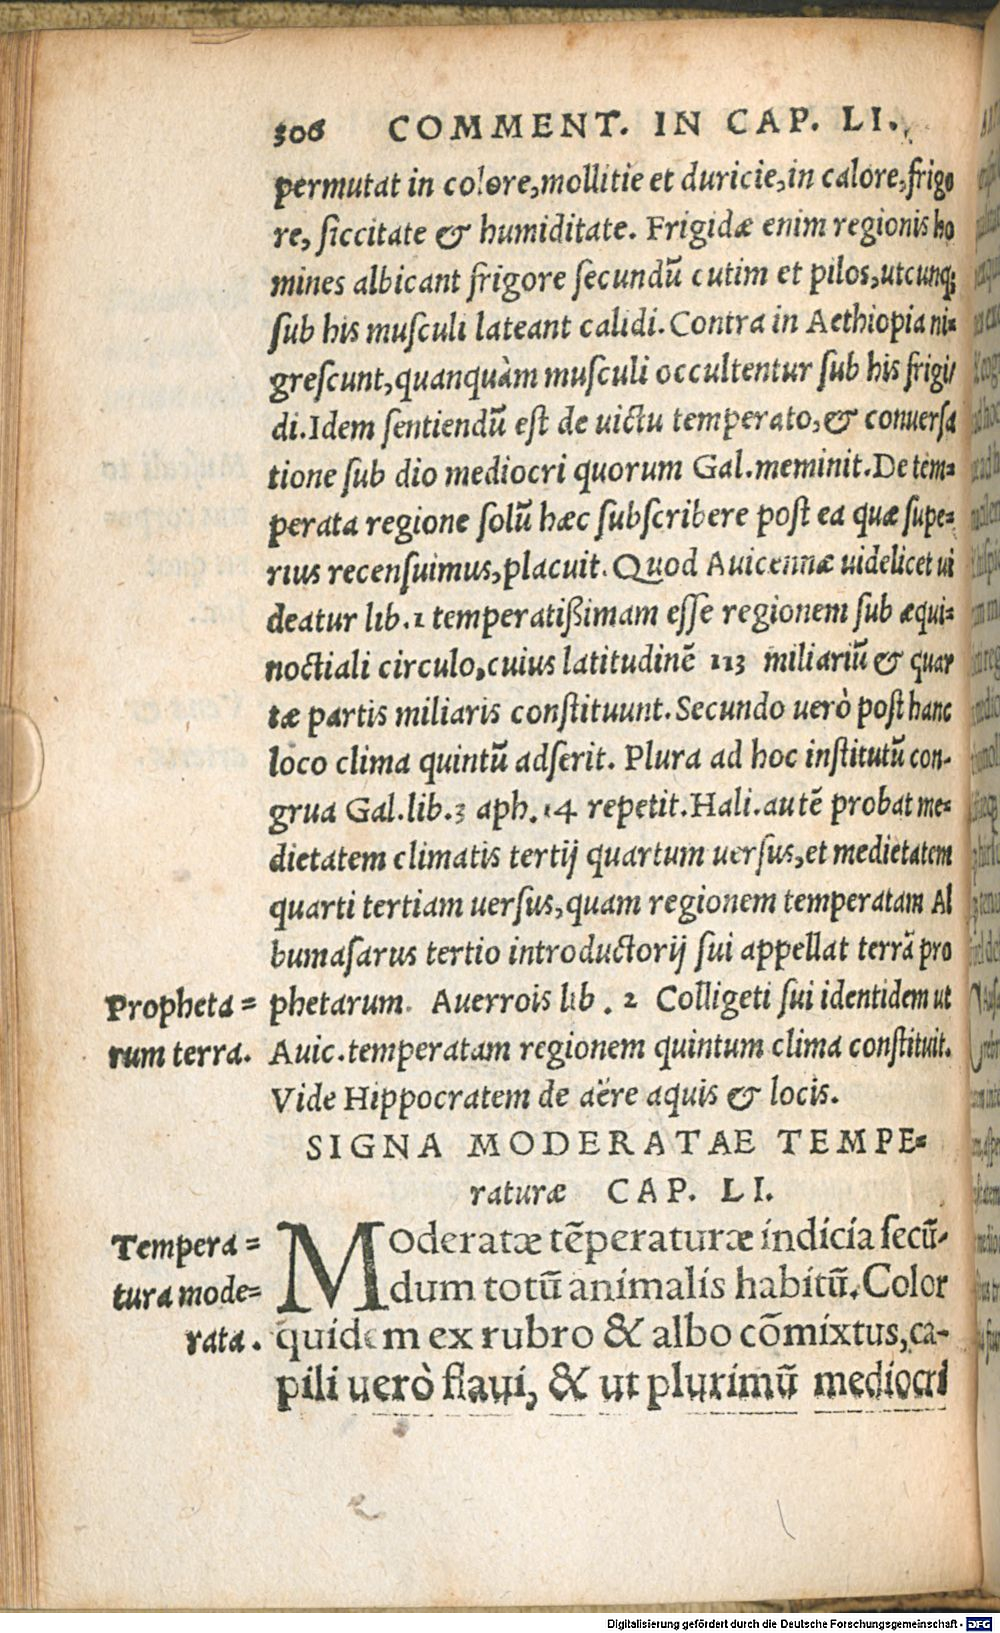 306 COMMENT. IN CAP. LI.
permutat in colore, mollitie et duricie, in calore, frigo
re, ſiccitate & humiditate. Frigidæ enim regionis ho
mines albicant frigore ſecundũ cutim et pilos, utcunq;
ſub his muſculi lateant calidi. Contra in Aethiopia ni=
greſcunt, quanquàm muſculi occultentur ſub his frigi/
di. Idem ſentiendũ eſt de uictu temperato, & conuerſa
tione ſub dio mediocri quorum Gal. meminit. De tem=
perata regione ſolũ hæc ſubſcribere poſt ea quæ ſupe=
rius recenſuimus, placuit. Quod Auicennæ uidelicet ui
deatur lib. 1 temperatißimam eſſe regionem ſub æqui=
noctiali circulo, cuius latitudinẽ 113 miliariũ & quar
tæ partis miliaris conſtituunt. Secundo uerò poſt hanc
loco clima quintũ adſerit. Plura ad hoc inſtitutũ con-
grua Gal. lib. 3 aph. 14 repetit. Hali. autẽ probat me=
dietatem climatis tertij quartum uerſus, et medietatem
quarti tertiam uerſus, quam regionem temperatam Al
bumaſarus tertio introductorij ſui appellat terrã pro
Propheta= phetarum. Auerrois lib. 2 Colligeti ſui identidem ut
rum terra. Auic. temperatam regionem quintum clima conſtituit.
Vide Hippocratem de aëre aquis & locis.
SIGNA MODERATAE TEMPE=
raturæ CAP. LI.
Tempera= Moderatæ tẽperaturæ indicia ſecũ-
tura mode= dum totũ animalis habitũ. Color
rata. quidem ex rubro & albo cõmixtus, ca-
pili uerò flaui, & ut plurimũ mediocri
Digitalisierung gefördert durch die Deutsche Forschungsgemeinschaft - DFG